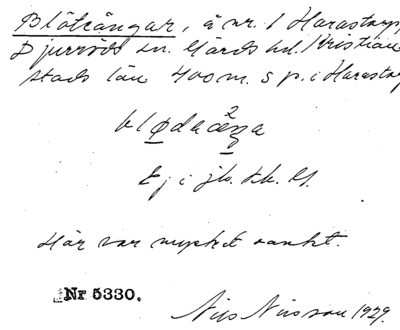 Blötängar, å nr. 1 Harastorp,
Djurröds sn. Gärds hd. Kristian
stads län 400 m. s p. i Harastorp
Ej i jb. sk. El.
Här var mycket vankt.
Nr 5330.
Nils Nilsson 1929.